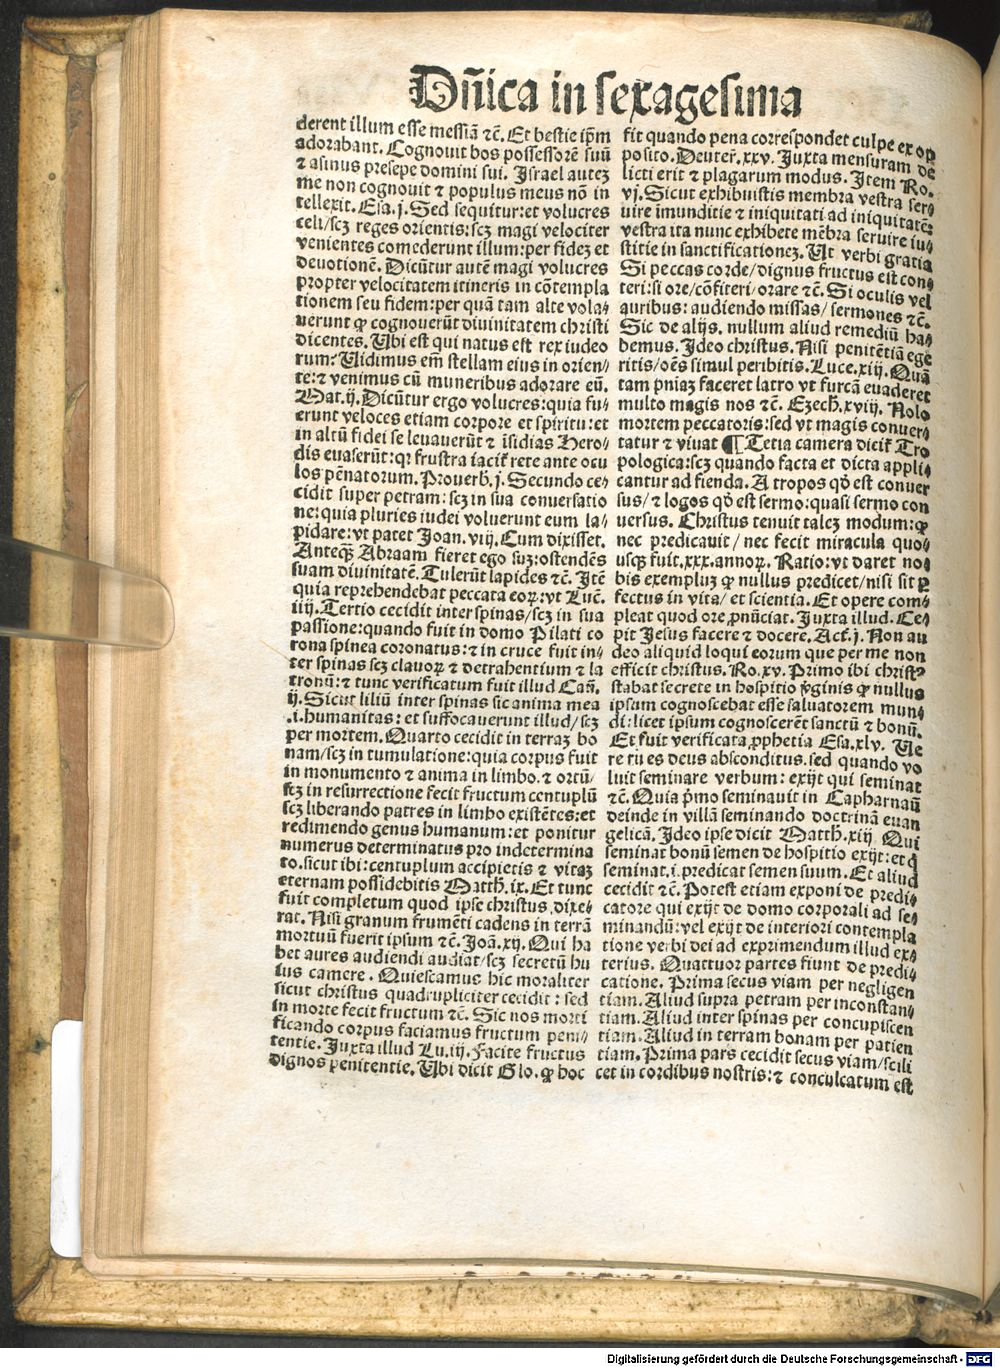 Dñica in sexagesima
derent illum esse messiã ⁊c̃. Et bestie ip̃m
adorabant. Cognouit bos possessorẽ suũ
⁊ asinus presepe domini sui. Israel auteꝫ
me non cognouit ⁊ populus meus nõ in
tellexit. Esa. j. Sed sequitur: et volucres
celi/scꝫ reges orientis: scꝫ magi velociter
venientes comederunt illum: per fideꝫ et
deuotionẽ. Dicũtur autẽ magi volucres
propter velocitatem itineris in cõtempla
tionem seu fidem: per quã tam alte vola⸗
uerunt ꝙ cognouerũt diuinitatem christi
dicentes. Ubi est qui natus est rex iudeo
rum: Uidimus em̃ stellam eius in orien⸗
te: ⁊ venimus cũ muneribus adorare eũ.
Mat. ij. Dicũtur ergo volucres: quia fu⸗
erunt veloces etiam corpore et spiritu: et
in altũ fidei se leuauerũt ⁊ ĩsidias Hero⸗
dis euaserũt: qꝛ frustra iacit᷑ rete ante ocu
los pẽnatorum. Prouerb̃. j. Secundo ce⸗
cidit super petram: scꝫ in sua conuersatio
ne: quia pluries iudei voluerunt eum la⸗
pidare: vt patet Joan. viij. Cum dixisset.
Anteqꝫ̃ Abraam fieret ego suꝫ: ostendẽs
suam diuinitatẽ. Tulerũt lapides ⁊c̃. Itẽ
quia reprehendebat peccata eoꝝ: vt Luc̃.
iiij. Tertio cecidit inter spinas/scꝫ in sua
passione: quando fuit in domo Pilati co
rona spinea coronatus: ⁊ in cruce fuit in⸗
ter spinas scꝫ clauoꝝ ⁊ detrahentium ⁊ la
tronũ: ⁊ tunc verificatum fuit illud Cañ.
ij. Sicut liliũ inter spinas sic anima mea
.i. humanitas: et suffocauerunt illud/scꝫ
per mortem. Quarto cecidit in terraꝫ bo
nam/scꝫ in tumulatione: quia corpus fuit
in monumento ⁊ anima in limbo. ⁊ ortũ/
scꝫ in resurrectione fecit fructum centuplũ
scꝫ liberando patres in limbo existẽtes: et
redimendo genus humanum: et ponitur
numerus determinatus pro indetermina
to. sicut ibi: centuplum accipietis ⁊ vitaꝫ
eternam possidebitis Matth̃. ix. Et tunc
fuit completum quod ipse christus dixe⸗
rat. Nisi granum frumẽti cadens in terrã
mortuũ fuerit ipsum ⁊c̃. Joã. xij. Qui ha
bet aures audiendi audiat/scꝫ secretũ hu
ius camere. Quiescamus hic moraliter
sicut christus quadrupliciter cecidit: sed
in morte fecit fructum ⁊c̃. Sic nos morti
ficando corpus faciamus fructum peni⸗
tentie. Juxta illud Lu. iij. Facite fructus
dignos penitentie. Ubi dicit Glo. ꝙ hoc
fit quando pena correspondet culpe ex op
posito. Deuter̃. xxv. Juxta mensuram de
licti erit ⁊ plagarum modus. Item Ro.
vj. Sicut exhibuistis membra vestra ser⸗
uire imunditie ⁊ iniquitati ad iniquitatẽ:
vestra ita nunc exhibete mẽbra seruire iu⸗
stitie in sanctificationeꝫ. Ut verbi gratia
Si peccas corde/dignus fructus est con⸗
teri: si ore/cõfiteri/orare ⁊c̃. Si oculis vel
auribus: audiendo missas/sermones ⁊c̃.
Sic de alijs. nullum aliud remediũ ha⸗
bemus. Ideo christus. Nisi penitẽtiã ege
ritis/oẽs simul peribitis. Luce. xiij. Quã
tam pniaꝫ faceret latro vt furcã euaderet
multo magis nos ⁊c̃. Ezech̃. xviij. Nolo
mortem peccatoris: sed vt magis conuer⸗
tatur ⁊ viuat ¶ Tetia camera dicit᷑ Tro
pologica: scꝫ quando facta et dicta appli⸗
cantur ad fienda. A tropos qđ est conuer
sus/⁊ logos qđ est sermo: quasi sermo con
uersus. Christus tenuit taleꝫ modum: ꝙ
nec predicauit/nec fecit miracula quo⸗
usqꝫ fuit. xxx. annoꝝ. Ratio: vt daret no⸗
bis exempluꝫ ꝙ nullus predicet/nisi sit ꝑ
fectus in vita/et scientia. Et opere com⸗
pleat quod ore ꝓnũciat. Juxta illud. Ce⸗
pit Jesus facere ⁊ docere. Act. j. Non au
deo aliquid loqui eorum que per me non
efficit christus. Ro. xv. Primo ibi christꝰ
stabat secrete in hospitio v̓ginis ꝙ nullus
ipsum cognoscebat esse saluatorem mun⸗
di: licet ipsum cognoscerẽt sanctũ ⁊ bonũ.
Et fuit verificata ꝓphetia Esa. xlv. Ue
re tu es deus absconditus. sed quando vo
luit seminare verbum: exijt qui seminat
⁊c̃. Quia pͥmo seminauit in Capharnaũ
deinde in villã seminando doctrinã euan
gelicã. Ideo ipse dicit Matth̃. xiij Qui
seminat bonũ semen de hospitio exijt: et q̃
seminat. i. predicat semen suum. Et aliud
cecidit ⁊c̃. Potest etiam exponi de predi⸗
catore qui exijt de domo corporali ad se⸗
minandũ: vel exijt de interiori contempla
tione verbi dei ad exprimendum illud ex⸗
terius. Quattuor partes fiunt de predi⸗
catione. Prima secus viam per negligen
tiam. Aliud supra petram per inconstan⸗
tiam. Aliud inter spinas per concupiscen
tiam. Aliud in terram bonam per patien
tiam. Prima pars cecidit secus viam/scili
cet in cordibus nostris: ⁊ conculcatum est
Digitalisierung gefördert durch die Deutsche Forschungsgemeinschaft - DFG